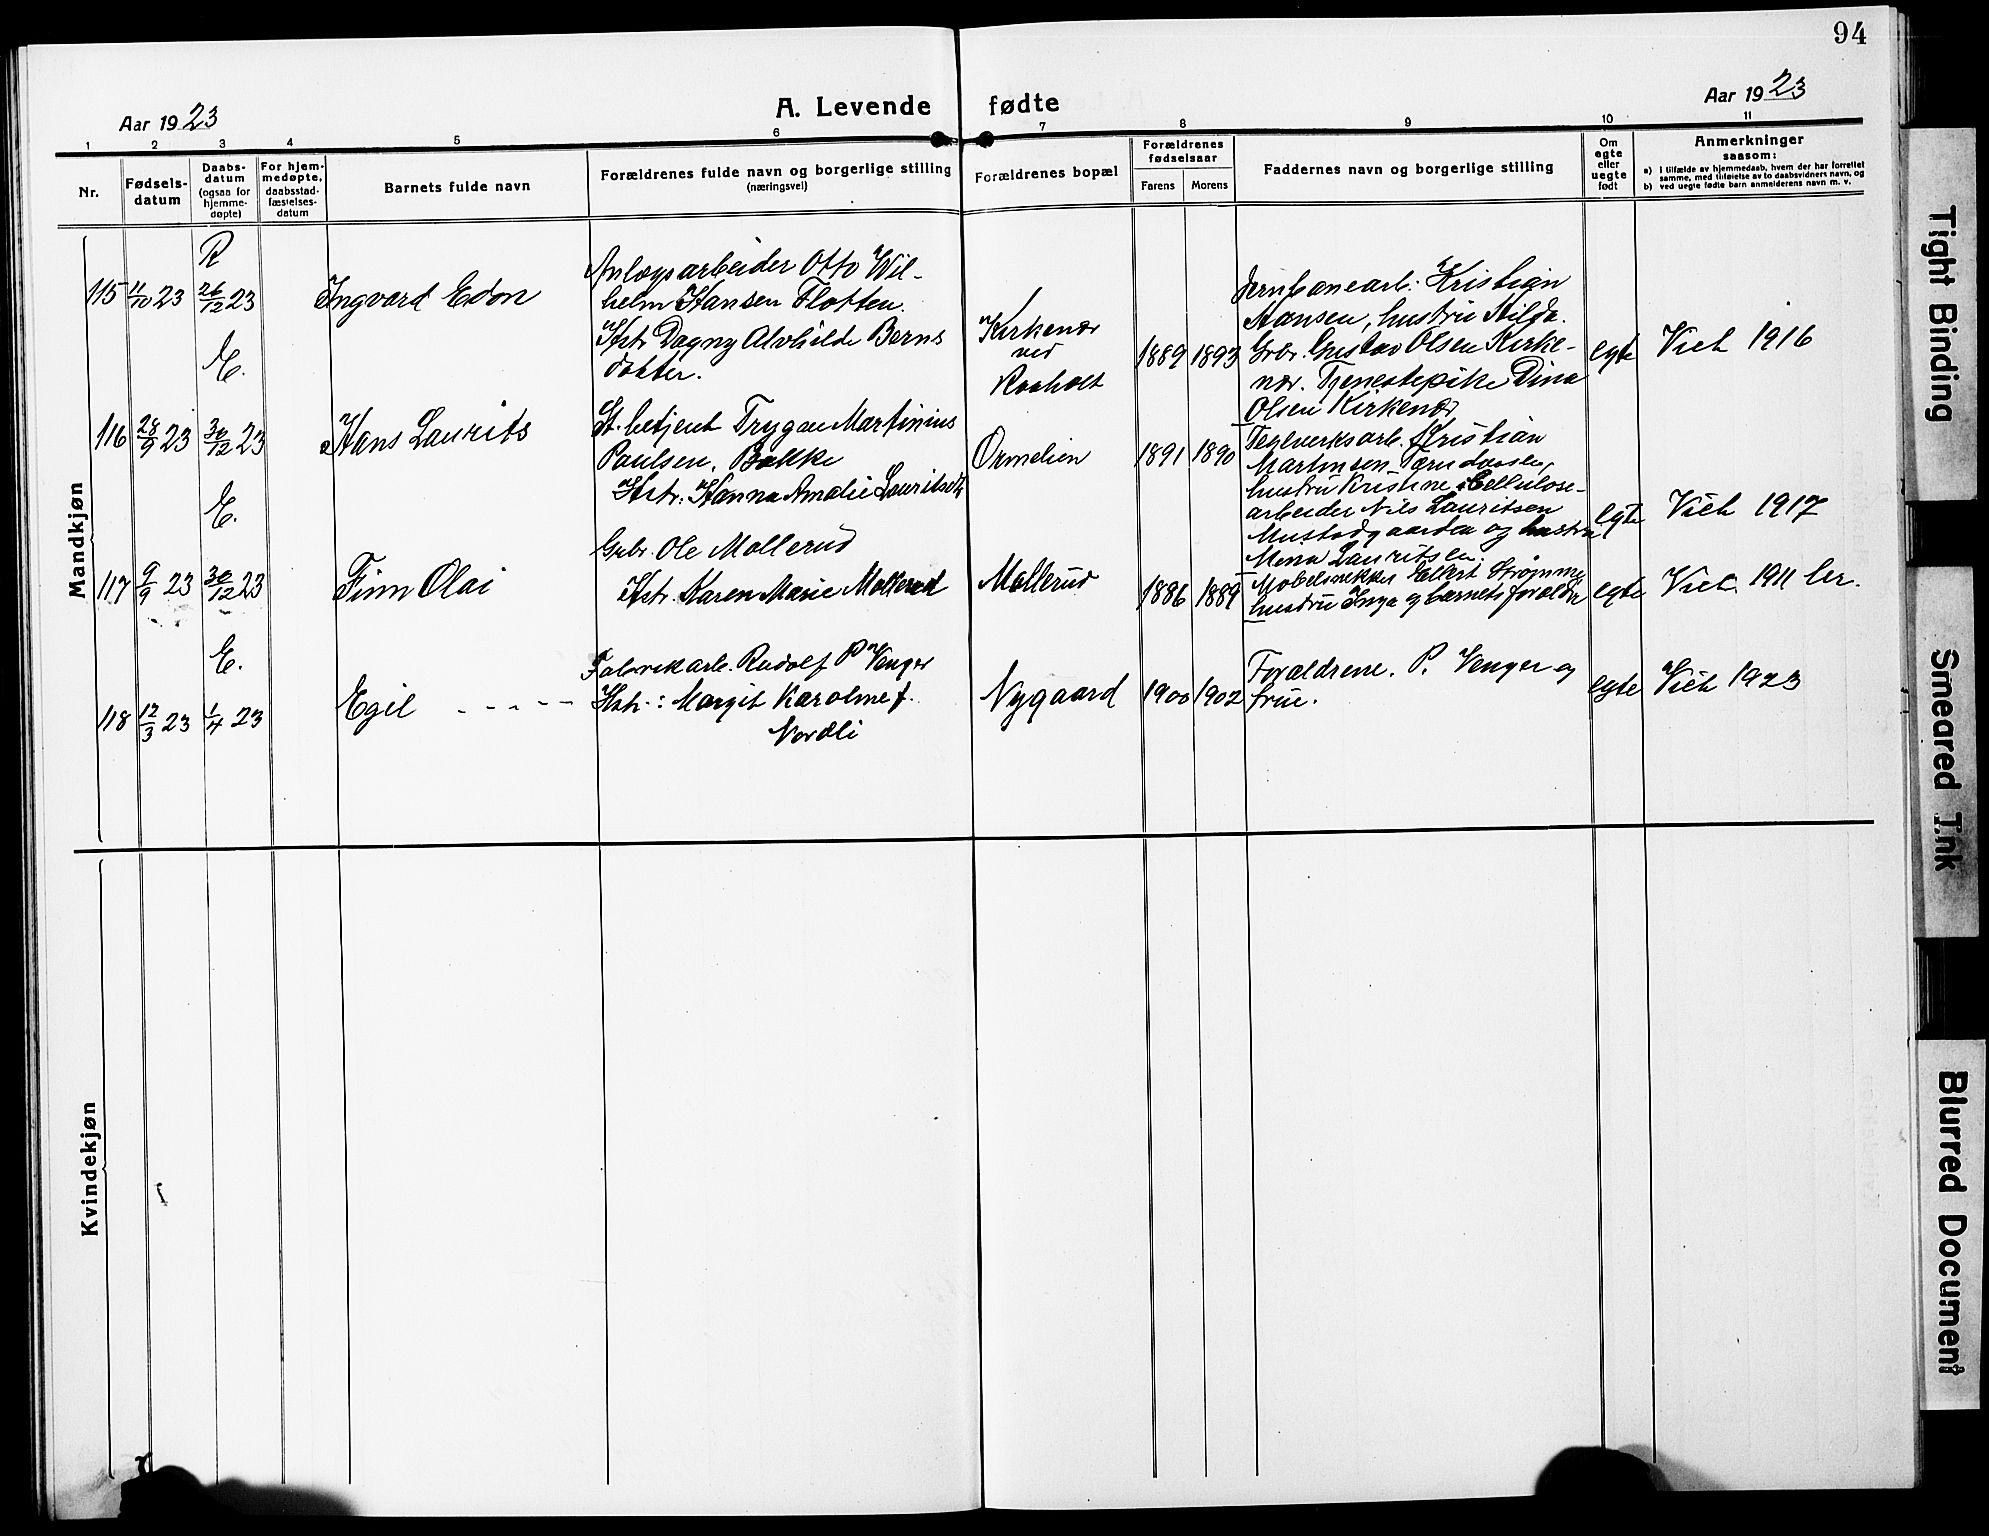 94
Aar 1923
A. Levende fødte
Aar 1923
1 2 3 4 5 6 7 8 9 10 11
Nr.
Fødsels-
datum
Daabs-
datum
(ogsaa for
hjemme-
døpte)
For hjem-
medøpte,
daabsstad-
fæstelses-
datum
Barnets fulde navn
Forældrenes fulde navn og borgerlige stilling
(næringsvei)
Forældrenes bopæl
Forældrenes
fødselsaar
Farens Morens
Faddernes navn og borgerlige stilling
Om
egte
eller
uegte
født
Anmerkninger
saasom:
a) I tilfælde av hjemmedaab, hvem der har forrettet
samme, med tilføielse av to daabsvidners navn, og
b) ved uegte fødte barn anmelderens navn m. v.
Mandkjøn
R
115 11/10 23 26/12 23
Ingvard Edon
Anlægsarbeider Otto Wil-
helm Hansen Flotten.
Hstr Dagny Alvhilde Berns
datter.
Kirkenær
ved
Raaholt
1889 1893
Jernbanearb. Kristian
Hansen, hustru Hilda.
Gbr. Gustav Olsen Kirke-
nær. Tjenestepike Dina
Olsen Kirkenær
egte
Viet 1916
E.
116 28/9 23 30/12 23
Hans Laurits
St. betjent Trygve Martinius
Paulsen. Bakke
Hstr. Hanna Amalie Lauritsdtr
Ormelien
1891 1890
Teglverksarb. Kristian
Martinsen
hustru Kristine. Cellulose-
arbeider Nils Lauritsen
Mustadgaarden og hustru
Mena Lauritsen.
egte
Viet 1917
E.
117 9/9 23 30/12 23
Finn Olai
Gbr. Ole Mollerud
Hstr. Karen Marie Mollerud
Mollerud
1886 1889
Møbelsnekker Ellert Strømme
hustru Inga og barnets forældre
egte
Viet 1911
E.
118 12/3 23 1/4 23
Egil - - - - -
Fabrikarb. Rudolf P Venger
Hstr.: Margit Karoline f.
Nordli
Nygaard
1900 1902
Forældrene. P. Venger og
frue.
egte
Viet 1923
Kvindekjøn
Tight Binding
Smeared Ink
Blurred Document